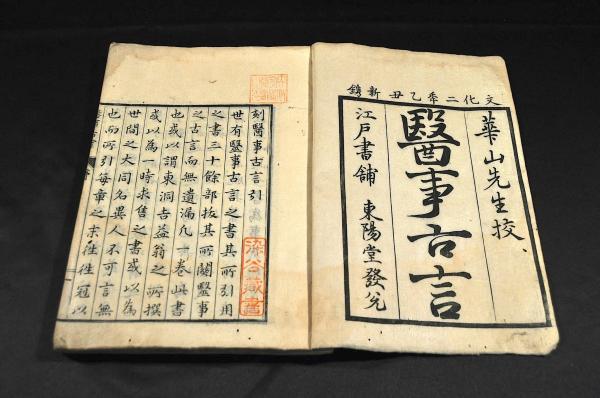 文化二秊乙丑新鐫
華山先生校
醫事古言
江戶書舖 東陽堂發兌
刻醫事古言引
世有醫事古言之書其所引用
之書三十餘部抜其所關醫事
之古言而無遺漏凡一卷此書
也或以謂東洞吉益翁之所撰
或以為一時求售之書或以為
世間之大同名異人不可言無
也而所引每章之末往往冠以
藏書